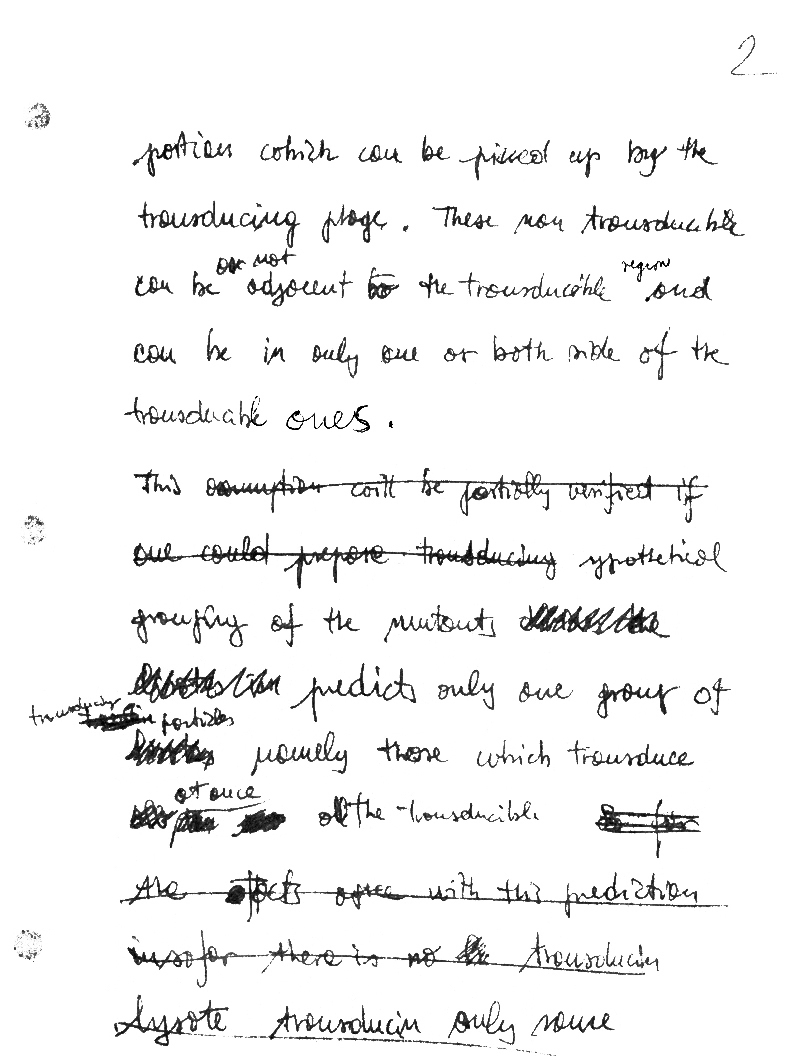 2
portion which can be picked up by the
transducing phage. These non transducible
or not region
can be adjacent to the transducible and
can be in only one or both side of the
transducible ones.
This assumption will be partially verified if
one could prepare transducing ypothetical
grouping of the mutants
predicts only one group of
transducing particles
namely those which transduce
at once
all the transducible
the facts agree with this prediction
insofar there is no transducin
lysate transducin only some